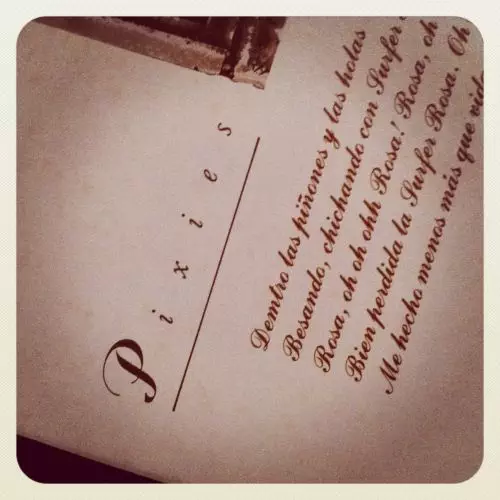 Pixies
Demtro las piñones y las holas
Besando, chichando con Surfer
Rosa, oh oh ohh Rosa! Rosa, oh
Bien perdida la Surfer Rosa. Oh
Me hecho menos más que vida